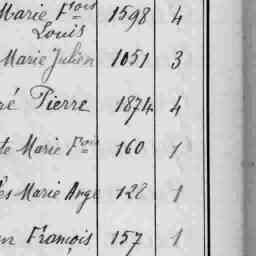 Marie Fois 1598 4
Louis
Marie Julien 1051 3
ré Pierre 1874 4
te Marie Fois 160 1
ès Marie Ange 128 1
n François 157 1